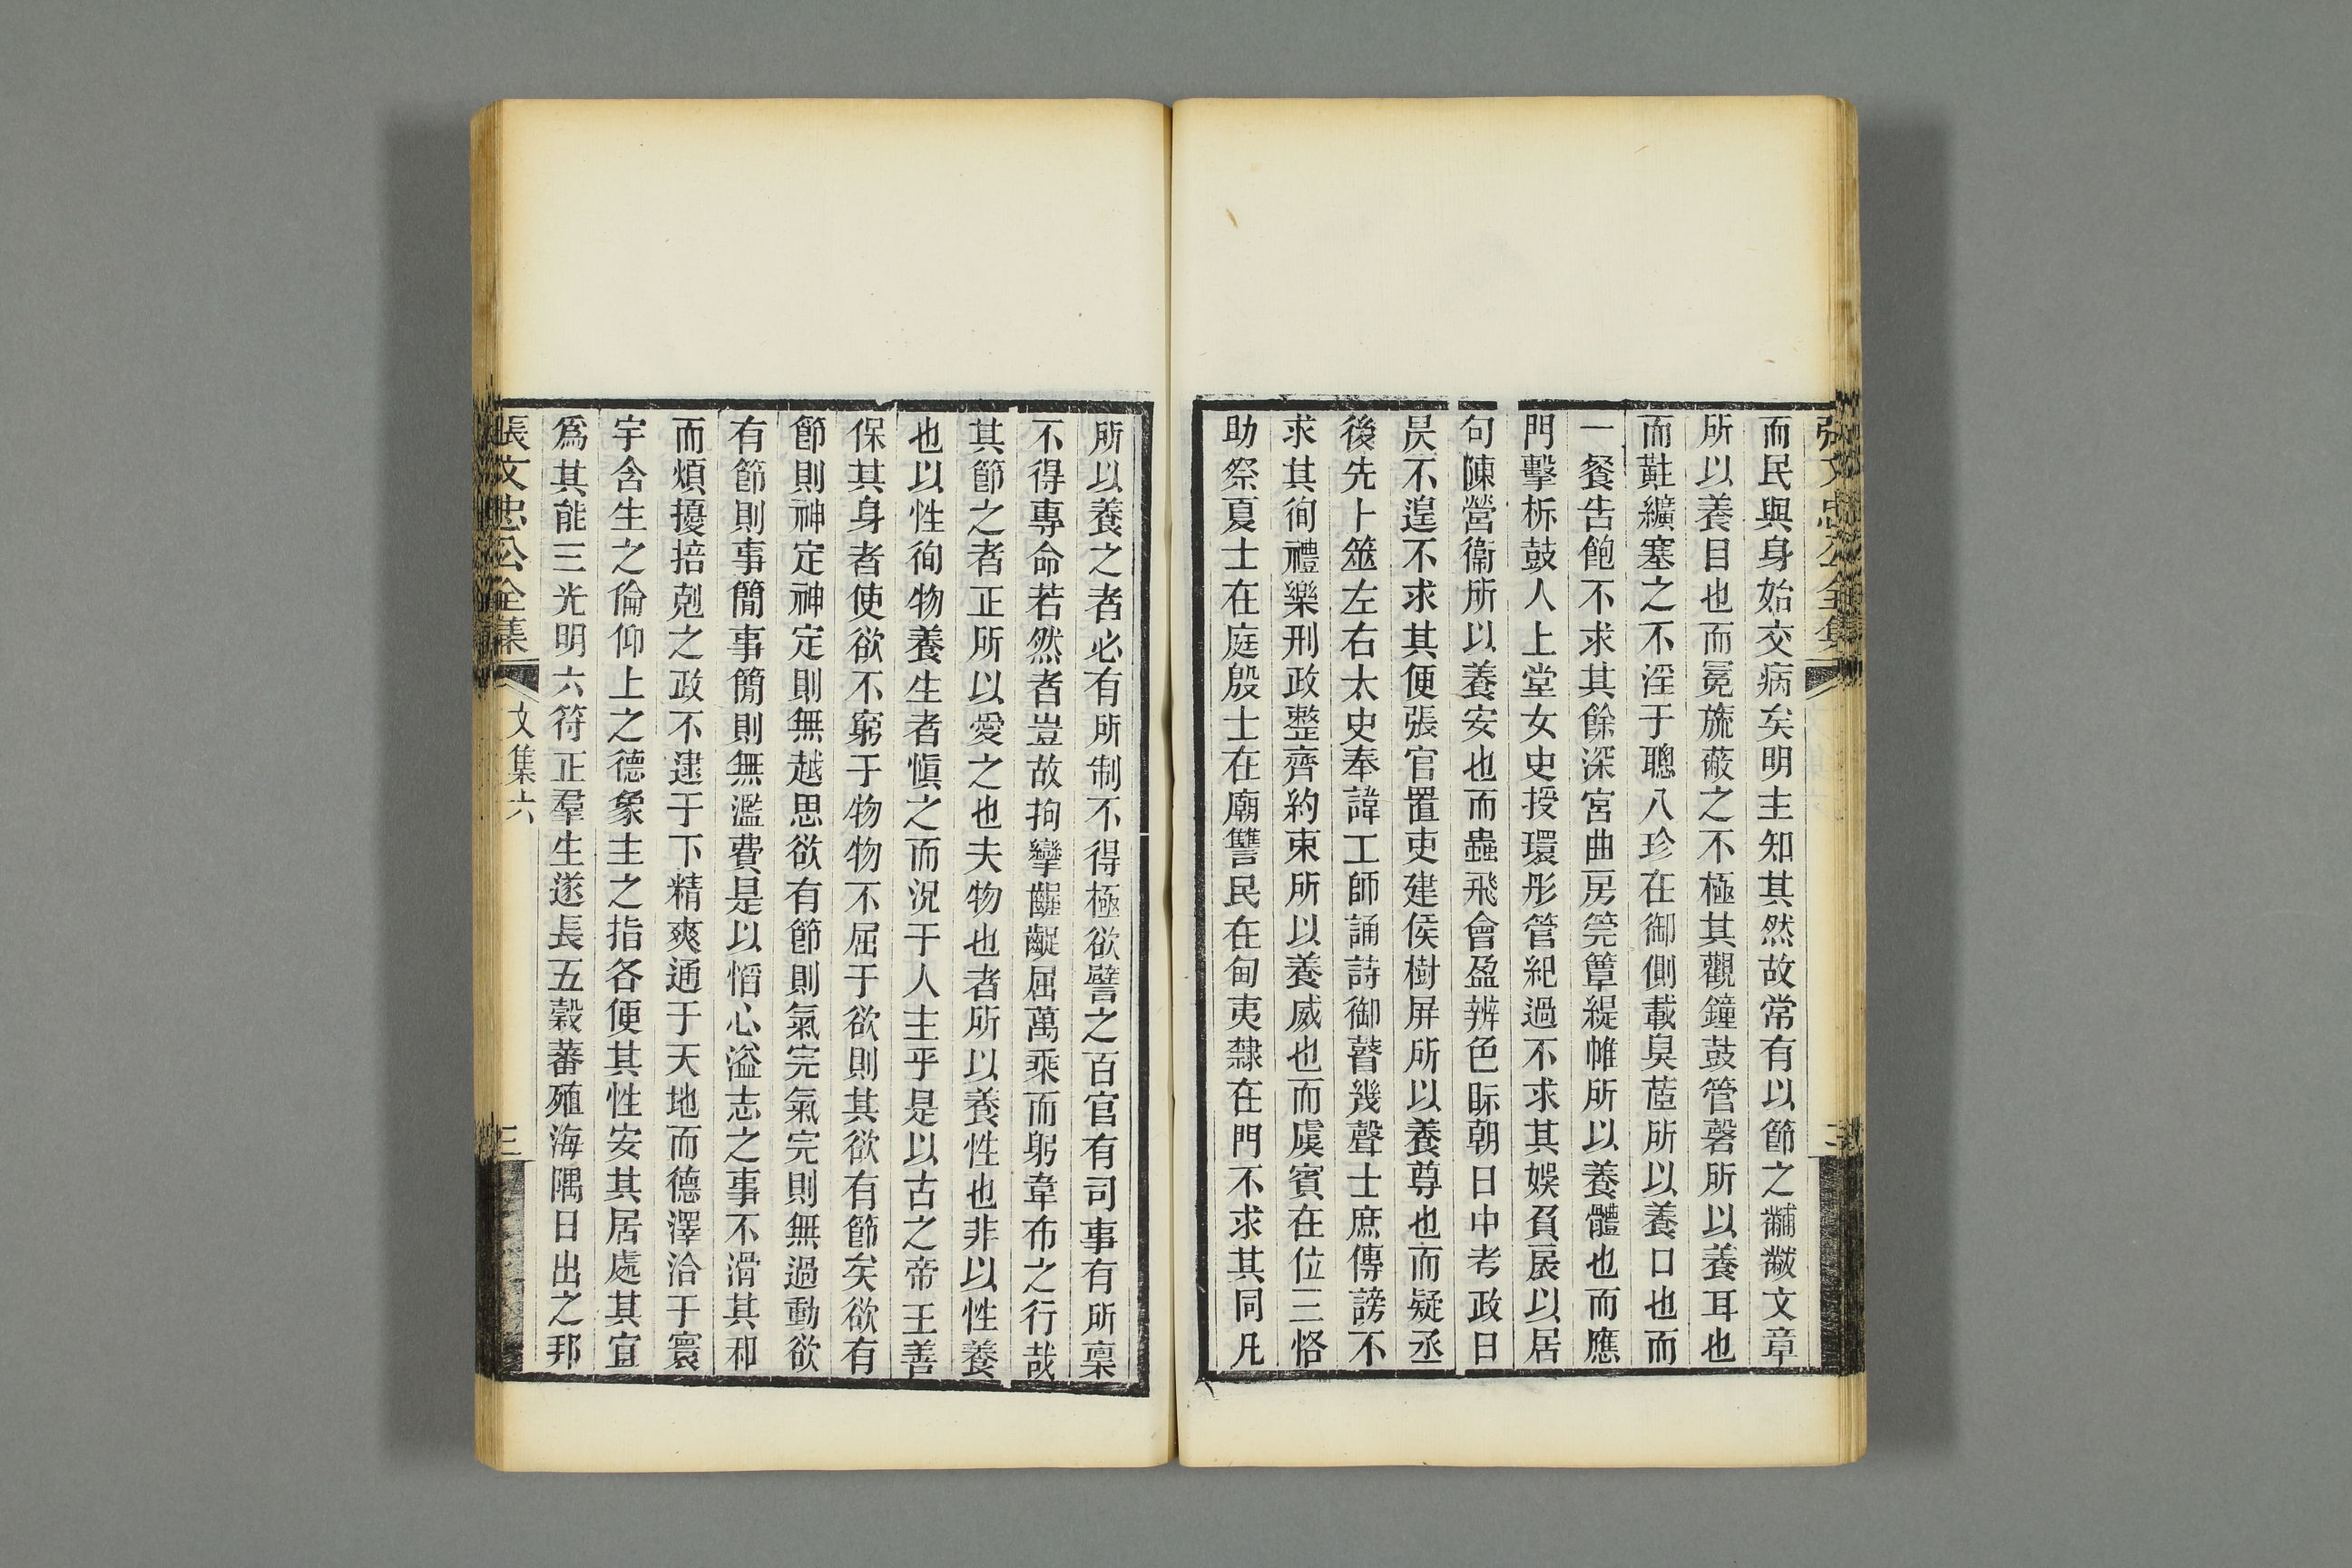 張文忠公全集
二
而民與身始交病矣明主知其然故常有以節之黼黻文章
所以養目也而冕旒蔽之不極其觀鐘鼓管磬所以養耳也
而黈纊塞之不淫于聰八珍在御側載臭茝所以養口也而
一餐告飽不求其餘深宮曲房筦簟緹帷所以養體也而應
門擊柝鼓人上堂女史授環彤管紀過不求其娛負扆以居
句陳營衞所以養安也而蟲飛會盈辨色眎朝日中考政日
昃不遑不求其便張官置吏建侯樹屏所以養尊也而疑丞
後先卜筮左右太史奉諱工師誦詩御瞽幾聲士庶傳謗不
求其徇禮樂刑政整齊約束所以養威也而虞賓在位三恪
助祭夏士在庭殷士在廟讐民在甸夷隸在門不求其同凡
所以養之者必有所制不得極欲譬之百官有司事有所稟
不得專命若然者豈故拘攣齷齪屈萬乘而躬韋布之行哉
其節之者正所以愛之也夫物也者所以養性也非以性養
也以性徇物養生者愼之而況于人主乎是以古之帝王善
保其身者使欲不窮于物物不屈于欲則其欲有節矣欲有
節則神定神定則無越思欲有節則氣完氣完則無過動欲
有節則事簡事簡則無濫費是以慆心溢志之事不滑其和
而煩擾掊剋之政不逮于下精爽通于天地而德澤洽于寰
宇含生之倫仰上之德象主之指各便其性安其居處其宜
爲其能三光明六符正羣生遂長五穀蕃殖海隅日出之邦
張文忠公全集
文集六
三